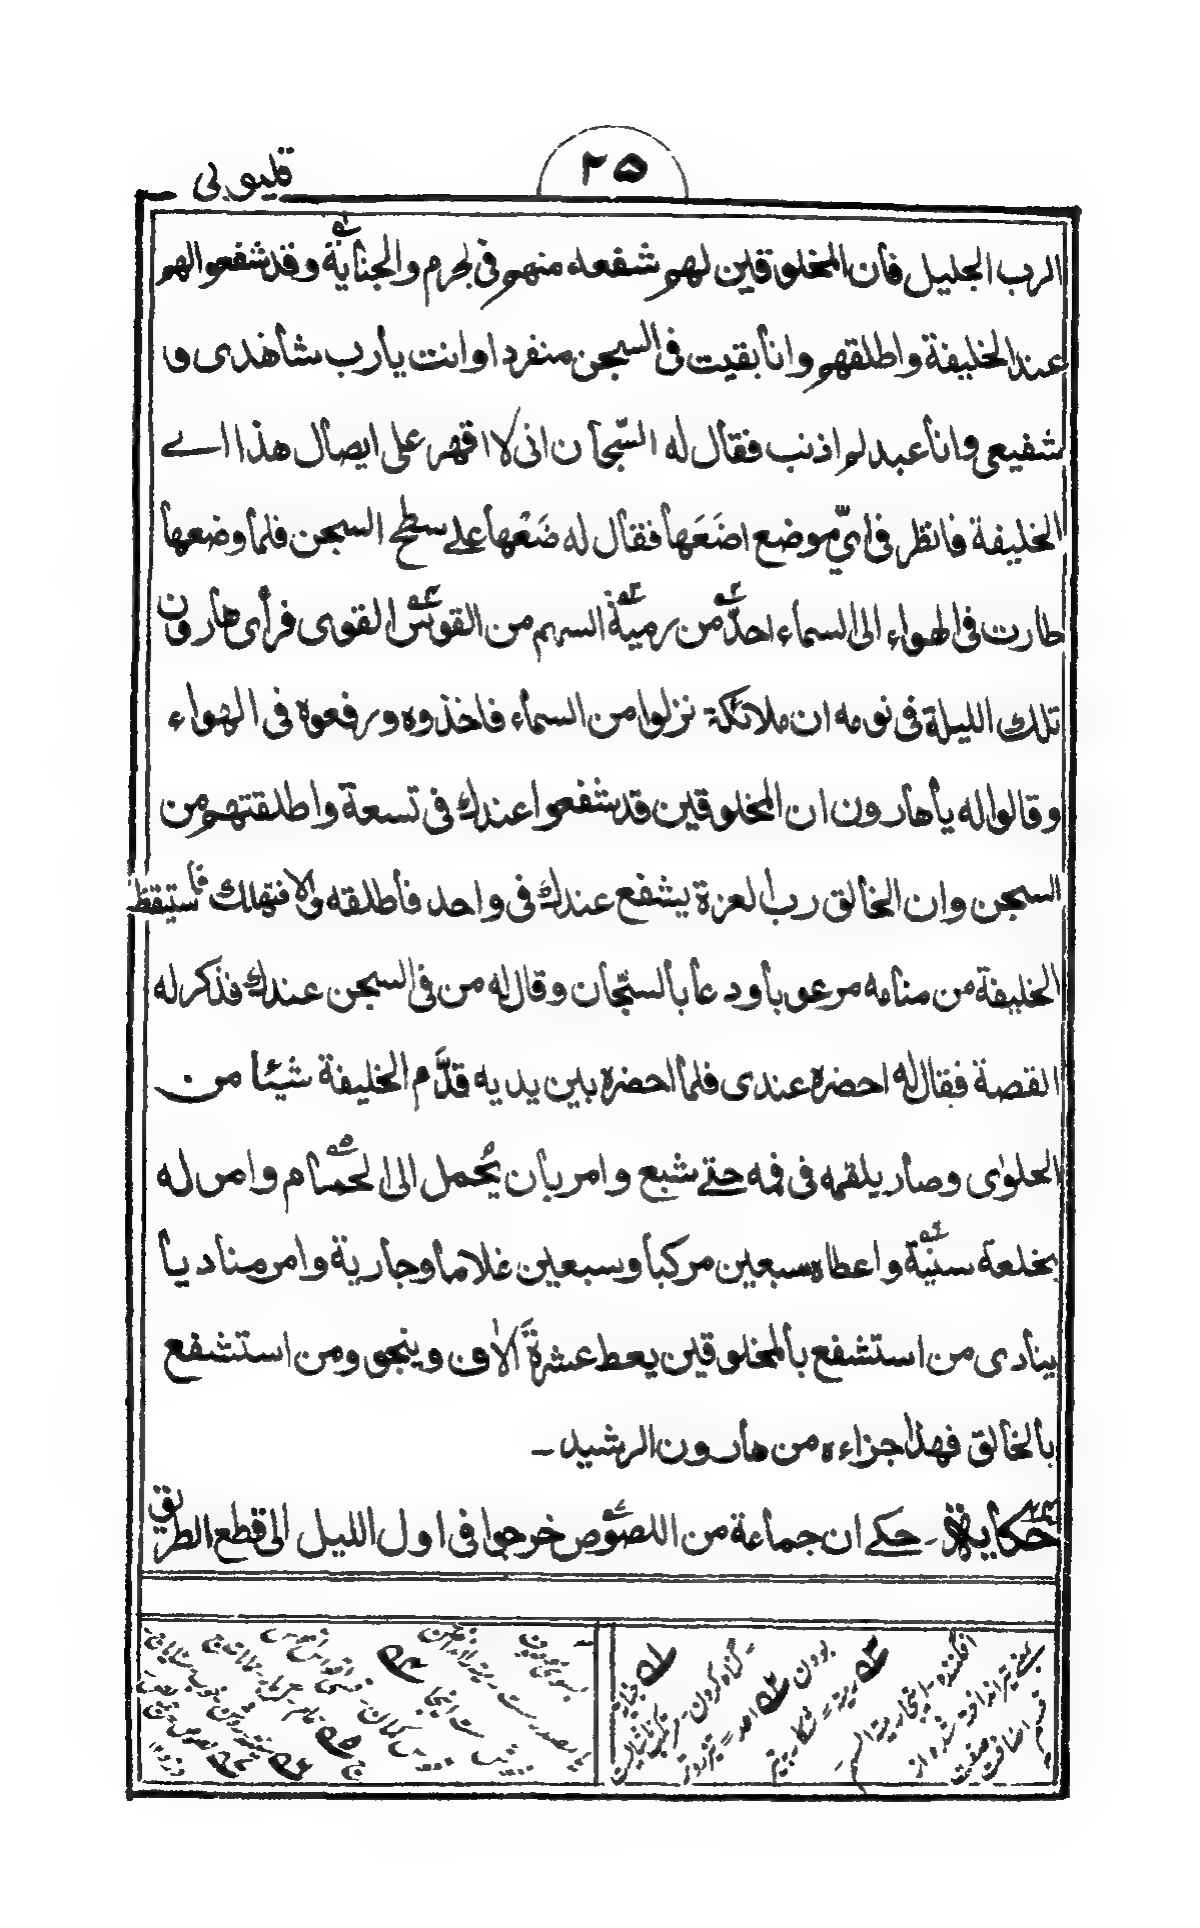 ۲۵
قليوبى
الرب الجليل فان المخلوقين لهم شفعاء منهم فى الجرم والجناية وقد شفعوا الهم
عند الخليفة واطلقهم وانا بقيت فى السجن منفردا وانت يارب شاهدى و
شفيعى وانا عبد لم اذنب فقال له السّجان انى لا اقهر على ايصال هذا الے
الخليفة فانظر فى اىّ موضع اضَعَها فقال له ضَعْها علے سطح السجن فلما وضعها
طارت فى الهواء الى السماء احدّ من رمية السهم من القوس القوى فرأى هارون
تلك الليلة فى نومه ان ملائكة نزلوا من السماء فاخذوه ورفعوه فى الهواء
وقالوا له يا هارون ان المخلوقين قد شفعوا عندك فى تسعة واطلقتهم من
السجن وان الخالق رب العزة يشفع عندك فى واحد فاطلقه والا فتهلك فاستيقظ
الخليفة من منامه مرعوبا ودعا بالسجّان وقال له من فى السجن عندك فذكر له
القصة فقال له احضره عندى فلما احضره بين يديه قدَّم الخليفة شيئا من
الحلوى وصار يلقمه فى فمه حتے شبع وامر بان يُحمل الى الحمام وامر له
بخلعة سنيّة واعطاه سبعين مركبا وسبعين غلاما وجارية وامر مناديا
ينادى من استشفع بالمخلوقين يعط عشرة آلاف وينجو ومن استشفع
بالخالق فهذا جزاءه من هارون الرشيد ـ
حكاية ـ حكے ان جماعة من اللصوص خرجوا فى اول الليل الى قطع الطريق